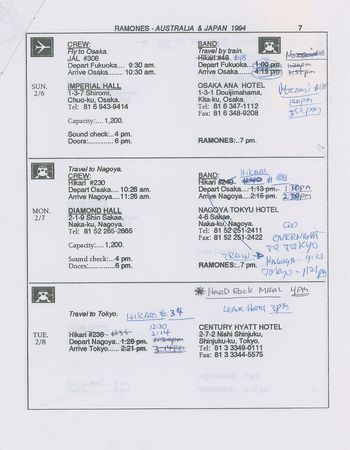 RAMONES - AUSTRALIA & JAPAN 1994 7
CREW:
Fly to Osaka.
JAL #306
Depart Fukuoka.... 9:30 am.
Arrive Osaka........ 10:30 am.
BAND:
Travel by train.
Hikari #48 #48
Depart Fukuoka.... 1:00 pm
Arrive Osaka........ 4:13 pm
1:20pm
3:52pm
SUN.
2/6
IMPERIAL HALL
1-3-7 Shiromi,
Chuo-ku, Osaka.
Tel: 81 6 943-9414
Capacity:....1,200.
Sound check:..4 pm.
Doors:...........6 pm.
OSAKA ANA HOTEL
1-3-1 Douijimahama,
Kita-ku, Osaka.
Tel: 81 6 347-1112
Fax: 81 6 348-9208
RAMONES:..7 pm.
120pm
352pm
Travel to Nagoya.
CREW:
Hikari #230
Depart Osaka.....10:26 am.
Arrive Nagoya....11:26 am.
BAND:
HIKARI
Hikari #240 #88
Depart Osaka......1:13 pm.
Arrive Nagoya.....2:15 pm.
MON.
2/7
DIAMOND HALL
2-1-9 Shin Sakae,
Naka-ku, Nagoya.
Tel: 81 52 265-2665
Capacity:......1,200.
Sound check:..4 pm.
Doors:...........6 pm.
NAGOYA TOKYU HOTEL
4-6 Sakae,
Naka-ku, Nagoya.
Tel: 81 52 251-2411
Fax: 81 52 251-2422
RAMONES:..7 pm.
GO
OVERNIGHT
TO TOKYO
TRAIN → NAGOYA - 9:23
TOKYO - 11:21pm
* HARD ROCK MEAL 4PM
LEAVE HOTEL 3PM
Travel to Tokyo. HIKARI #34
TUE.
2/8
Hikari #236 #36
Depart Nagoya...1:28 pm.
Arrive Tokyo...... 2:21 pm.
12:20
2:14
3:14pm
CENTURY HYATT HOTEL
2-7-2 Nishi Shinjuku,
Shinjuku-ku, Tokyo.
Tel: 81 3 3349-0111
Fax: 81 3 3344-5575